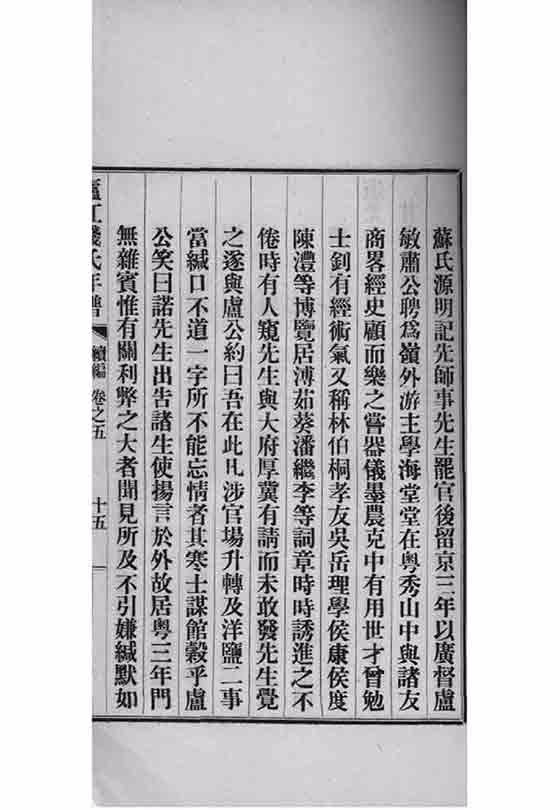 蘇氏源明記先師事先生罷官後留京三年以廣督盧
敏肅公聘爲嶺外游主學海堂堂在粵秀山中與諸友
商畧經史顧而樂之嘗器儀墨農克中有用世才曾勉
士釗有經術氣又稱林伯桐孝友吳岳理學侯康侯度
陳澧等博覽居溥茹葵潘繼李等詞章時時誘進之不
倦時有人窺先生與大府厚冀有請而未敢發先生覺
之遂與盧公約曰吾在此凡涉官場升轉及洋鹽二事
當緘口不道一字所不能忘情者其寒士謀館穀乎盧
公笑曰諾先生出告諸生使揚言於外故居粵三年門
無雜賓惟有關利弊之大者聞見所及不引嫌緘默如
廬江錢氏年譜 續編 卷之五 十五